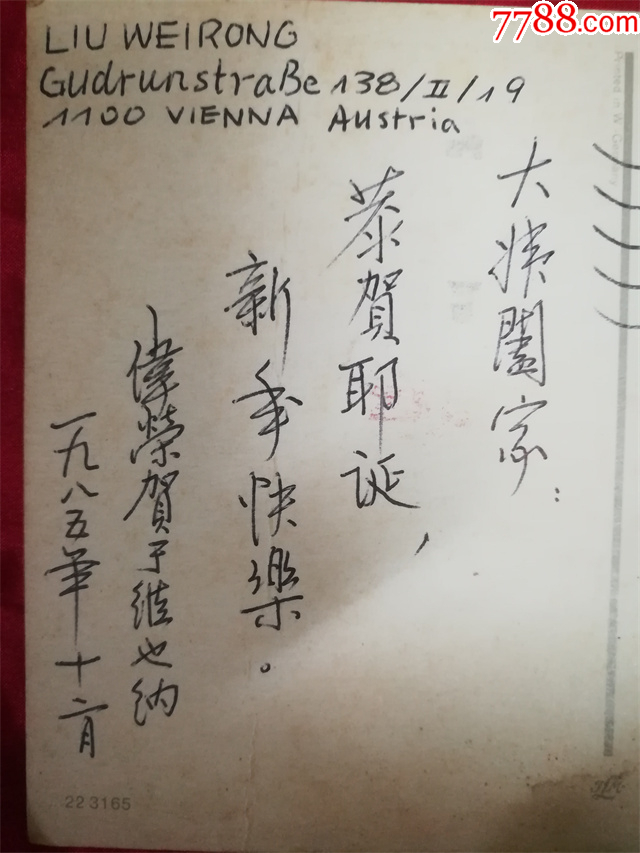 7788.com
LIU WEIRONG
Gudrunstraße 138/II/19
1100 VIENNA Austria
大姨闔家：
恭賀耶誕，
新年快樂。
偉榮賀于維也纳
一九八五年十二月
22 3165